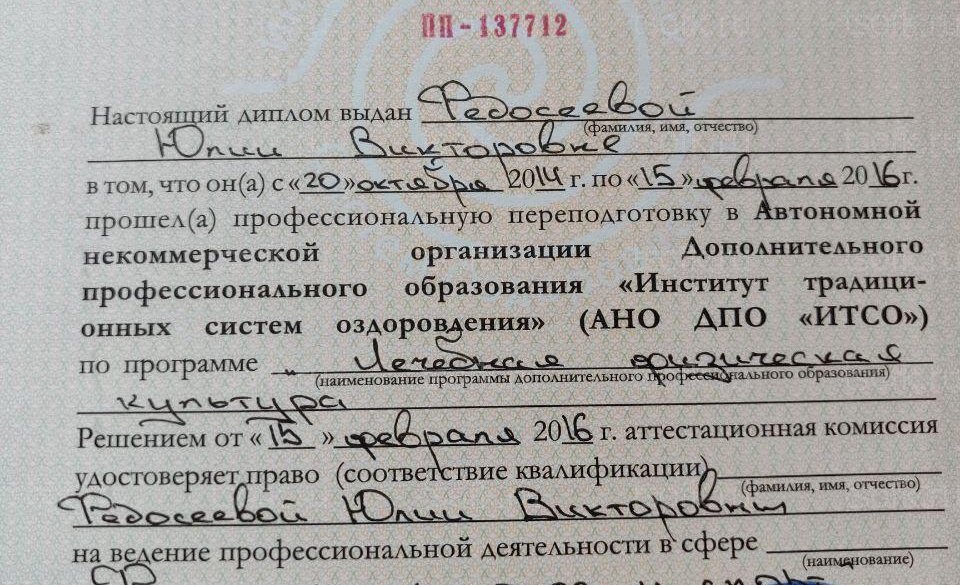 ПП-137712
Настоящий диплом выдан Федосеевой
(фамилия, имя, отчество)
Юлии Викторовне
в том, что он(а) с «20» октября 2014 г. по «15» февраля 2016 г.
прошел(а) профессиональную переподготовку в Автономной
некоммерческой организации Дополнительного
профессионального образования «Институт традици-
онных систем оздоровдения» (АНО ДПО «ИТСО»)
по программе „ Лечебная физическая
(наименование программы дополнительного профессионального образования)
культура
Решением от «15» февраля 2016 г. аттестационная комиссия
удостоверяет право (соответствие квалификации)
(фамилия, имя, отчество)
Федосеевой Юлии Викторовны
на ведение профессиональной деятельности в сфере
(наименование)